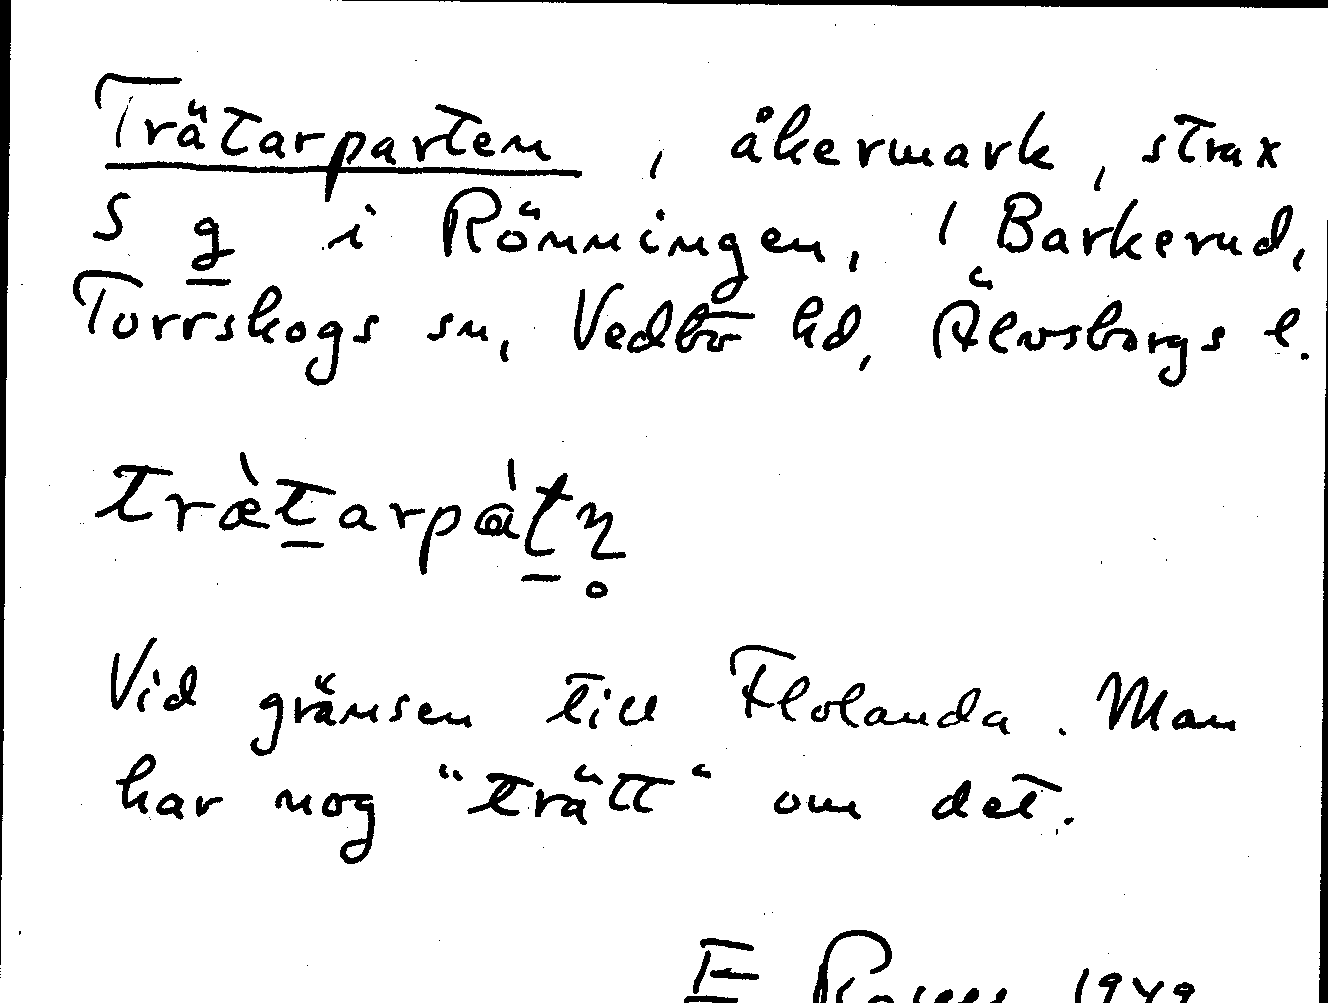 Trätarparten, åkermark, strax
S g i Rönningen, 1 Barkerud,
Torrskogs sn, Vedbo hd, Älvsborgs l.
træ̀t̲arpàt̲n̥
Vid gränsen till Flolanda. Man
har nog "trätt" om det.
E 1949